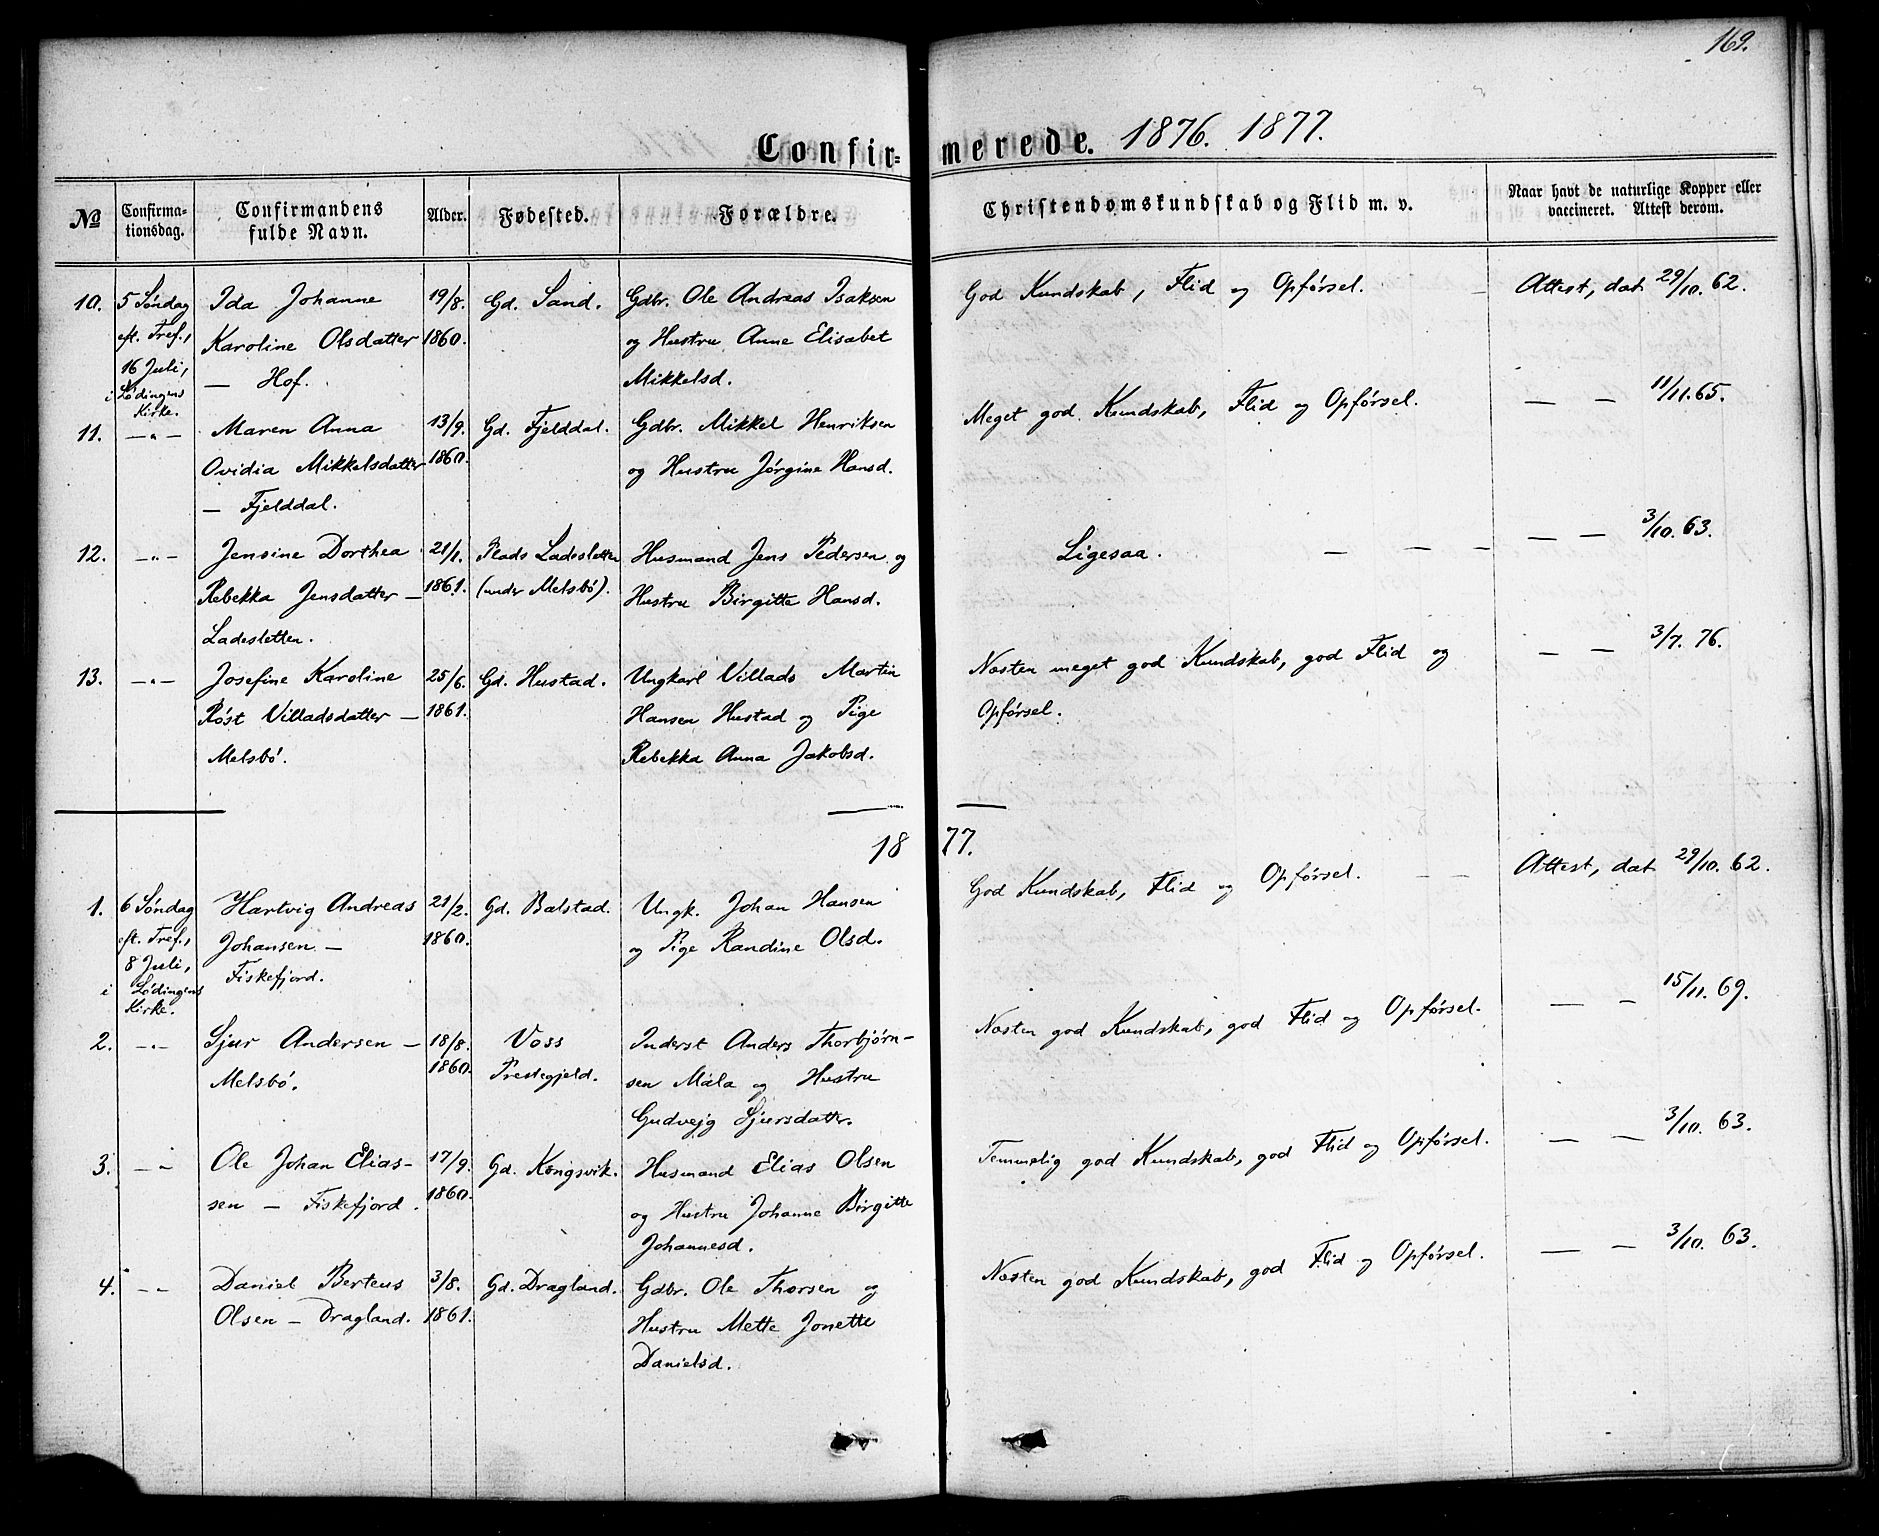 169.
Confir= merede. 1876. 1877.
№
Confirma-
tionsdag.
Confirmandens
fulde Navn.
Alder.
Fødested.
Forældre.
Christendomskundskab og Flid m. v.
Naar havt de naturlige Kopper eller
vaccineret. Attest derom.
10.
5 Søndag
eft. Tref.,
16 Juli,
i Lødingens
Kirke.
Ida Johanne
Karoline Olsdatter
— Hof.
19/8.
1860.
Gd. Sand.
Gdbr. Ole Andreas Isaksen
og Hustru Anne Elisabet
Mikkelsd.
God Kundskab, Flid og Opførsel.
Attest, dat 29/10. 62.
11.
— „ —
Maren Anna
Ovidia Mikkelsdatter
— Fjelddal.
13/9.
1860.
Gd. Fjelddal.
Gdbr. Mikkel Henriksen
og Hustru Jørgine Hansd.
Meget god Kundskab, Flid og Opførsel.
— — 11/11. 65.
12.
— „ —
Jensine Dorthea
Rebekka Jensdatter —
Ladesletten.
21/1.
1861.
Plads Ladesletten
(under Melsbö).
Husmand Jens Pedersen og
Hustru Birgitte Hansd.
Ligesaa. — — —
— — 3/10. 63.
13.
— „ —
Josefine Karoline
Røst Villadsdatter —
Melsbö.
25/6.
1861.
Gd. Hustad.
Ungkarl Villads Martin
Hansen Hustad og Pige
Rebekka Anna Jakobsd.
Næsten meget god Kundskab, god Flid og
Opførsel.
— — 3/7. 76.
1877.
1.
6 Søndag
eft. Tref.,
8 Juli,
i Lødingens
Kirke.
Hartvig Andreas
Johansen —
Fiskefjord.
21/2.
1860.
Gd. Balstad.
Ungk. Johan Hansen
og Pige Randine Olsd.
God Kundskab, Flid og Opførsel. — —
Attest, dat 29/10. 62.
2.
— „ —
Sjur Andersen —
Melsbö.
18/8.
1860.
Voss
Prestegjeld.
Inderst Anders Thorbjørn-
sen Mála og Hustru
Gudvejg Sjursdatter.
Næsten god Kundskab, god Flid og Opførsel.
— — 15/11. 69.
3.
— „
Ole Johan Elias-
sen — Fiskefjord.
17/9.
1860.
Gd. Kongsvik.
Husmand Elias Olsen
og Hustru Johanne Birgitte
Johannesd.
Temmelig god Kundskab, god Flid og Opførsel.
— — 3/10. 63.
4.
— „
Daniel Berteus
Olsen — Dragland.
3/8.
1861.
Gd. Dragland.
Gdbr. Ole Thorsen og
Hustru Mette Jonette
Danielsd.
Næsten god Kundskab, god Flid og Opførsel.
— — 3/10. 63.